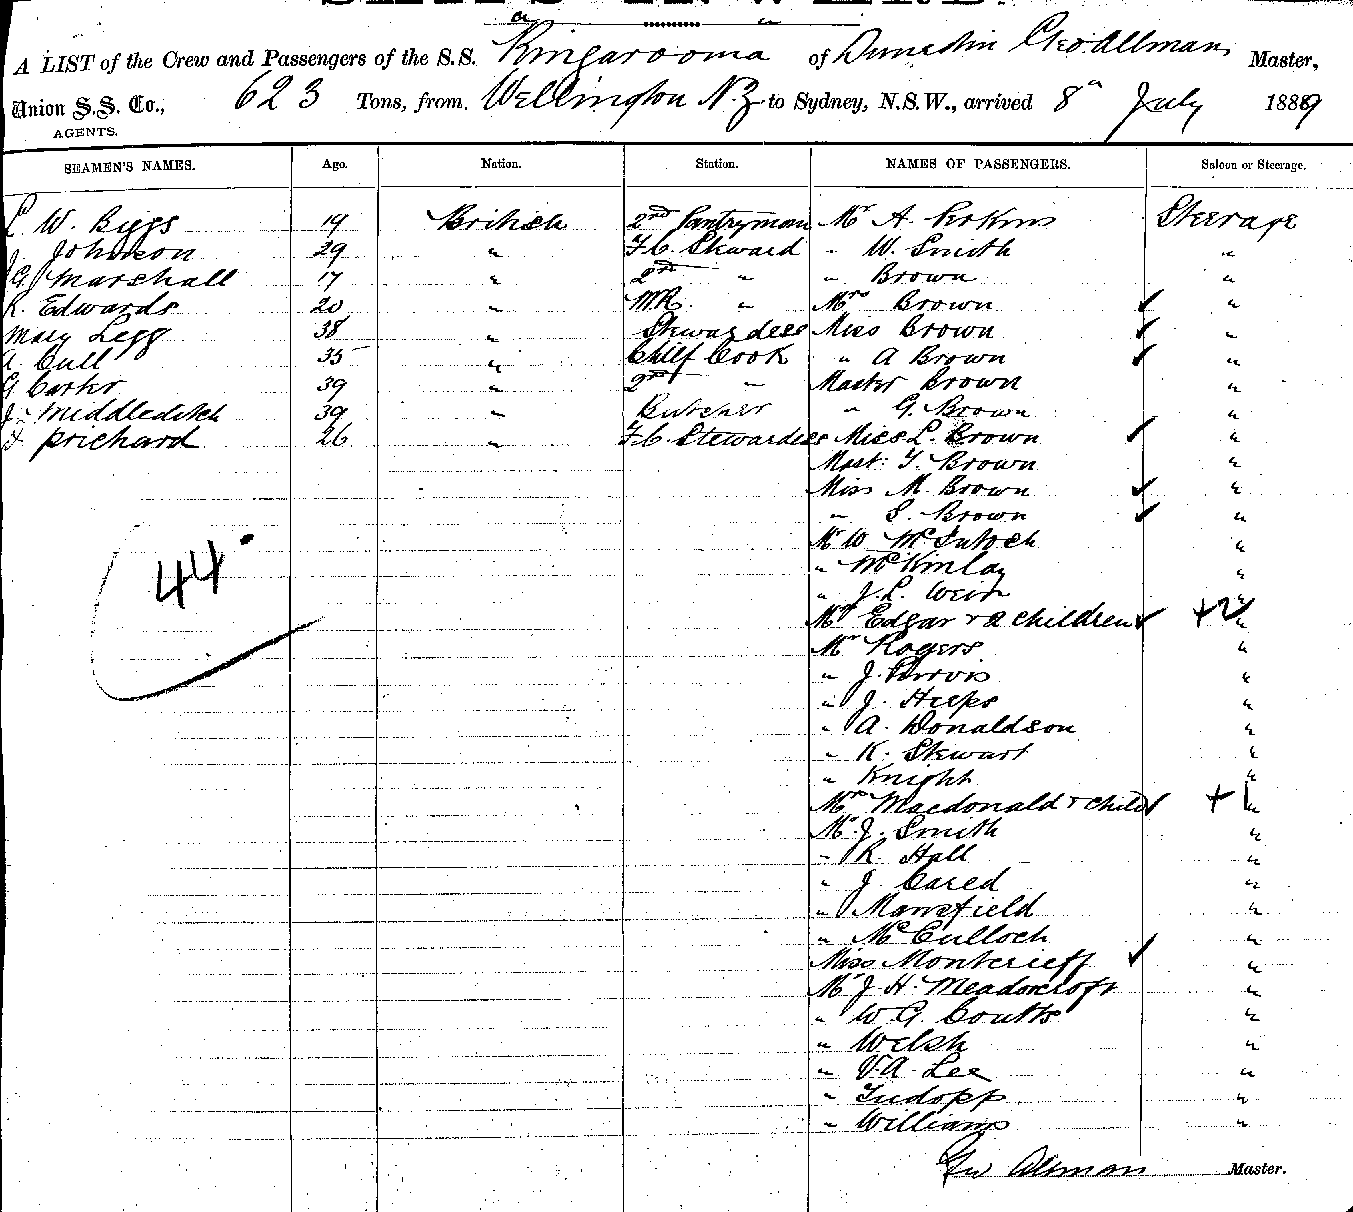 A LIST of the Crew and Passengers of the S.S. Ringarooma of Dunedin Geo Allman, Master,
Union S.S. Co., 623 Tons, from Wellington N.Z to Sydney, N.S.W., arrived 8th July 1889
AGENTS.
SEAMEN'S NAMES. Age. Nation. Station. NAMES OF PASSENGERS. Saloon or Steerage.
W. Biggs 19 British 2nd Pantryman Mr A. Perkins Steerage
J Johnson 29 " F.C. Steward " W. Smith "
G Marshall 17 " 2nd " " Brown "
R. Edwards 20 " MR. " Mrs Brown "
Mary Legg 38 " Stewardess Miss Brown "
A Cull 35 " Chief Cook " A Brown "
G Carter 39 " 2nd " Master Brown "
J Middleditch 39 " Butcher " G. Brown "
prichard 26 " F.C. Stewardess Miss L. Brown "
Mast: T. Brown "
Miss M. Brown "
" S. Brown "
Mr W McIntosh "
" McKinlay "
44 " J.L. Weir "
Mrs Edgar + 2 children + 2 "
Mr Rogers "
" J. Purvis "
" J. Heeps "
" A. Donaldson "
" K. Stewart "
" Knight "
Mrs Macdonald + child + 1 "
Mr J. Smith "
" R. Hall "
" J "
" Mansfield "
" McCulloch "
Miss Montcrieff "
Mr J. H. Meadowcroft "
" W.G. Coutts "
" Welsh "
" V.A. Lee "
" Tudopp "
" Williams "
Geo Allman Master.